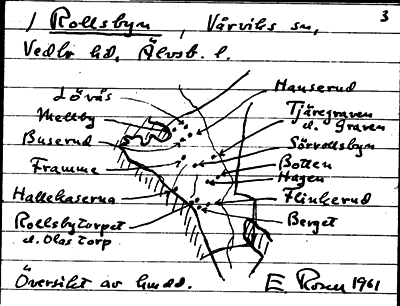 3
/ Rollsbyn, Vårviks sn,
Vedbo hd, Älvsb. l.
Lövås
Mellby
Buserud
Framme
Hallekaserna
Rollsbytorpet
d. Olas torp
Hanserud
Tjäregraven
d. Graven
Sörrollsbyn
Botten
Hagen
Flinkerud
Berget
Översikt av hmdd.
E Rosen 1961